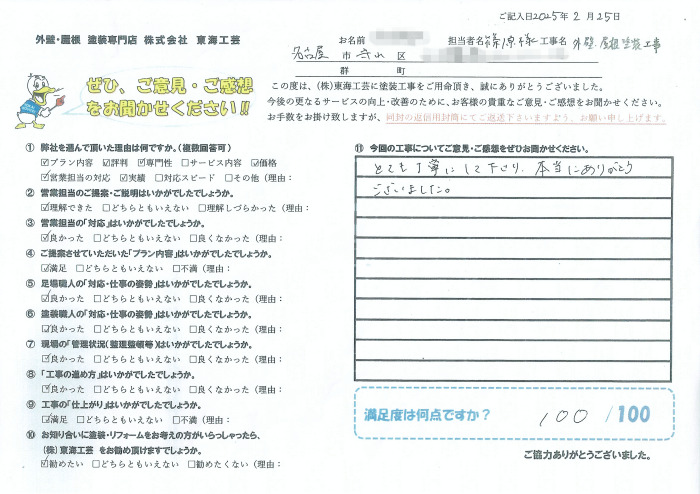 ご記入日2025年 2月 25日
外壁・屋根 塗装専門店 株式会社 東海工芸
お名前 担当者名 篠原様 工事名 外壁・屋根塗装工事
名古屋 市 守山 区
群 町
ぜひ、ご意見・ご感想
をお聞かせください!!
この度は、(株)東海工芸に塗装工事をご用命頂き、誠にありがとうございました。
今後の更なるサービスの向上・改善のために、お客様の貴重なご意見・ご感想をお聞かせください。
お手数をお掛け致しますが、同封の返信用封筒にてご返送下さいますよう、お願い申し上げます。
① 弊社を選んで頂いた理由は何ですか。(複数回答可)
☑プラン内容 ☑評判 ☑専門性 □サービス内容 ☑価格
☑営業担当の対応 ☑実績 □対応スピード □その他(理由:
② 営業担当のご提案・ご説明はいかがでしたでしょうか。
☑理解できた □どちらともいえない □理解しづらかった(理由:
③ 営業担当の「対応」はいかがでしたでしょうか。
☑良かった □どちらともいえない □良くなかった(理由:
④ ご提案させていただいた「プラン内容」はいかがでしたでしょうか。
☑満足 □どちらともいえない □不満(理由:
⑤ 足場職人の「対応・仕事の姿勢」はいかがでしたでしょうか。
☑良かった □どちらともいえない □良くなかった(理由:
⑥ 塗装職人の「対応・仕事の姿勢」はいかがでしたでしょうか。
☑良かった □どちらともいえない □良くなかった(理由:
⑦ 現場の「管理状況(整理整頓等)はいかがでしたでしょうか。
☑良かった □どちらともいえない □良くなかった(理由:
⑧ 「工事の進め方」はいかがでしたでしょうか。
☑良かった □どちらともいえない □良くなかった(理由:
⑨ 工事の「仕上がり」はいかがでしたでしょうか。
☑満足 □どちらともいえない □不満(理由:
⑩ お知り合いに塗装・リフォームをお考えの方がいらっしゃったら、
(株)東海工芸 をお勧め頂けますでしょうか。
☑勧めたい □どちらともいえない □勧めたくない(理由:
⑪ 今回の工事についてご意見・ご感想をぜひお聞かせください。
とても丁寧にして下さり、本当にありがとう
ございました。
満足度は何点ですか? 100 /100
ご協力ありがとうございました。